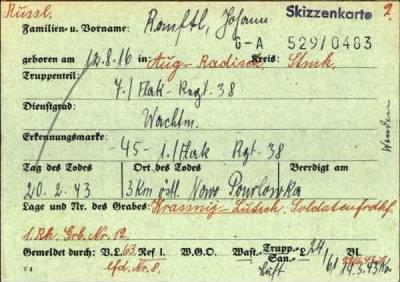 Russl. Skizzenkarte 9.
Familien- u. Vorname: Ramftl, Johann
G-A 529/0483
geboren am 12.8.16 in Aug-Radisch Kreis: Stmk.
Truppenteil: 7./Flak-Rgt. 38
Dienstgrad: Wachtm.
Erkennungsmarke: -45- 1./Flak Rgt. 38
Tag des Todes Ort des Todes Beerdigt am
20.2.43 3km östl. Nowo Pawlowka
Lage und Nr. des Grabes: Krassnij-Lutsch, Soldatenfrdhf.
1. Rh. Grb. Nr. 12
Gemeldet durch: V.L. 63 Ref 1. W.G.O. Wast.- Trupp.- San.- L 24/61 Bl.
V 4 lfd. Nr. 8. Luft 19.5.43
Wenden